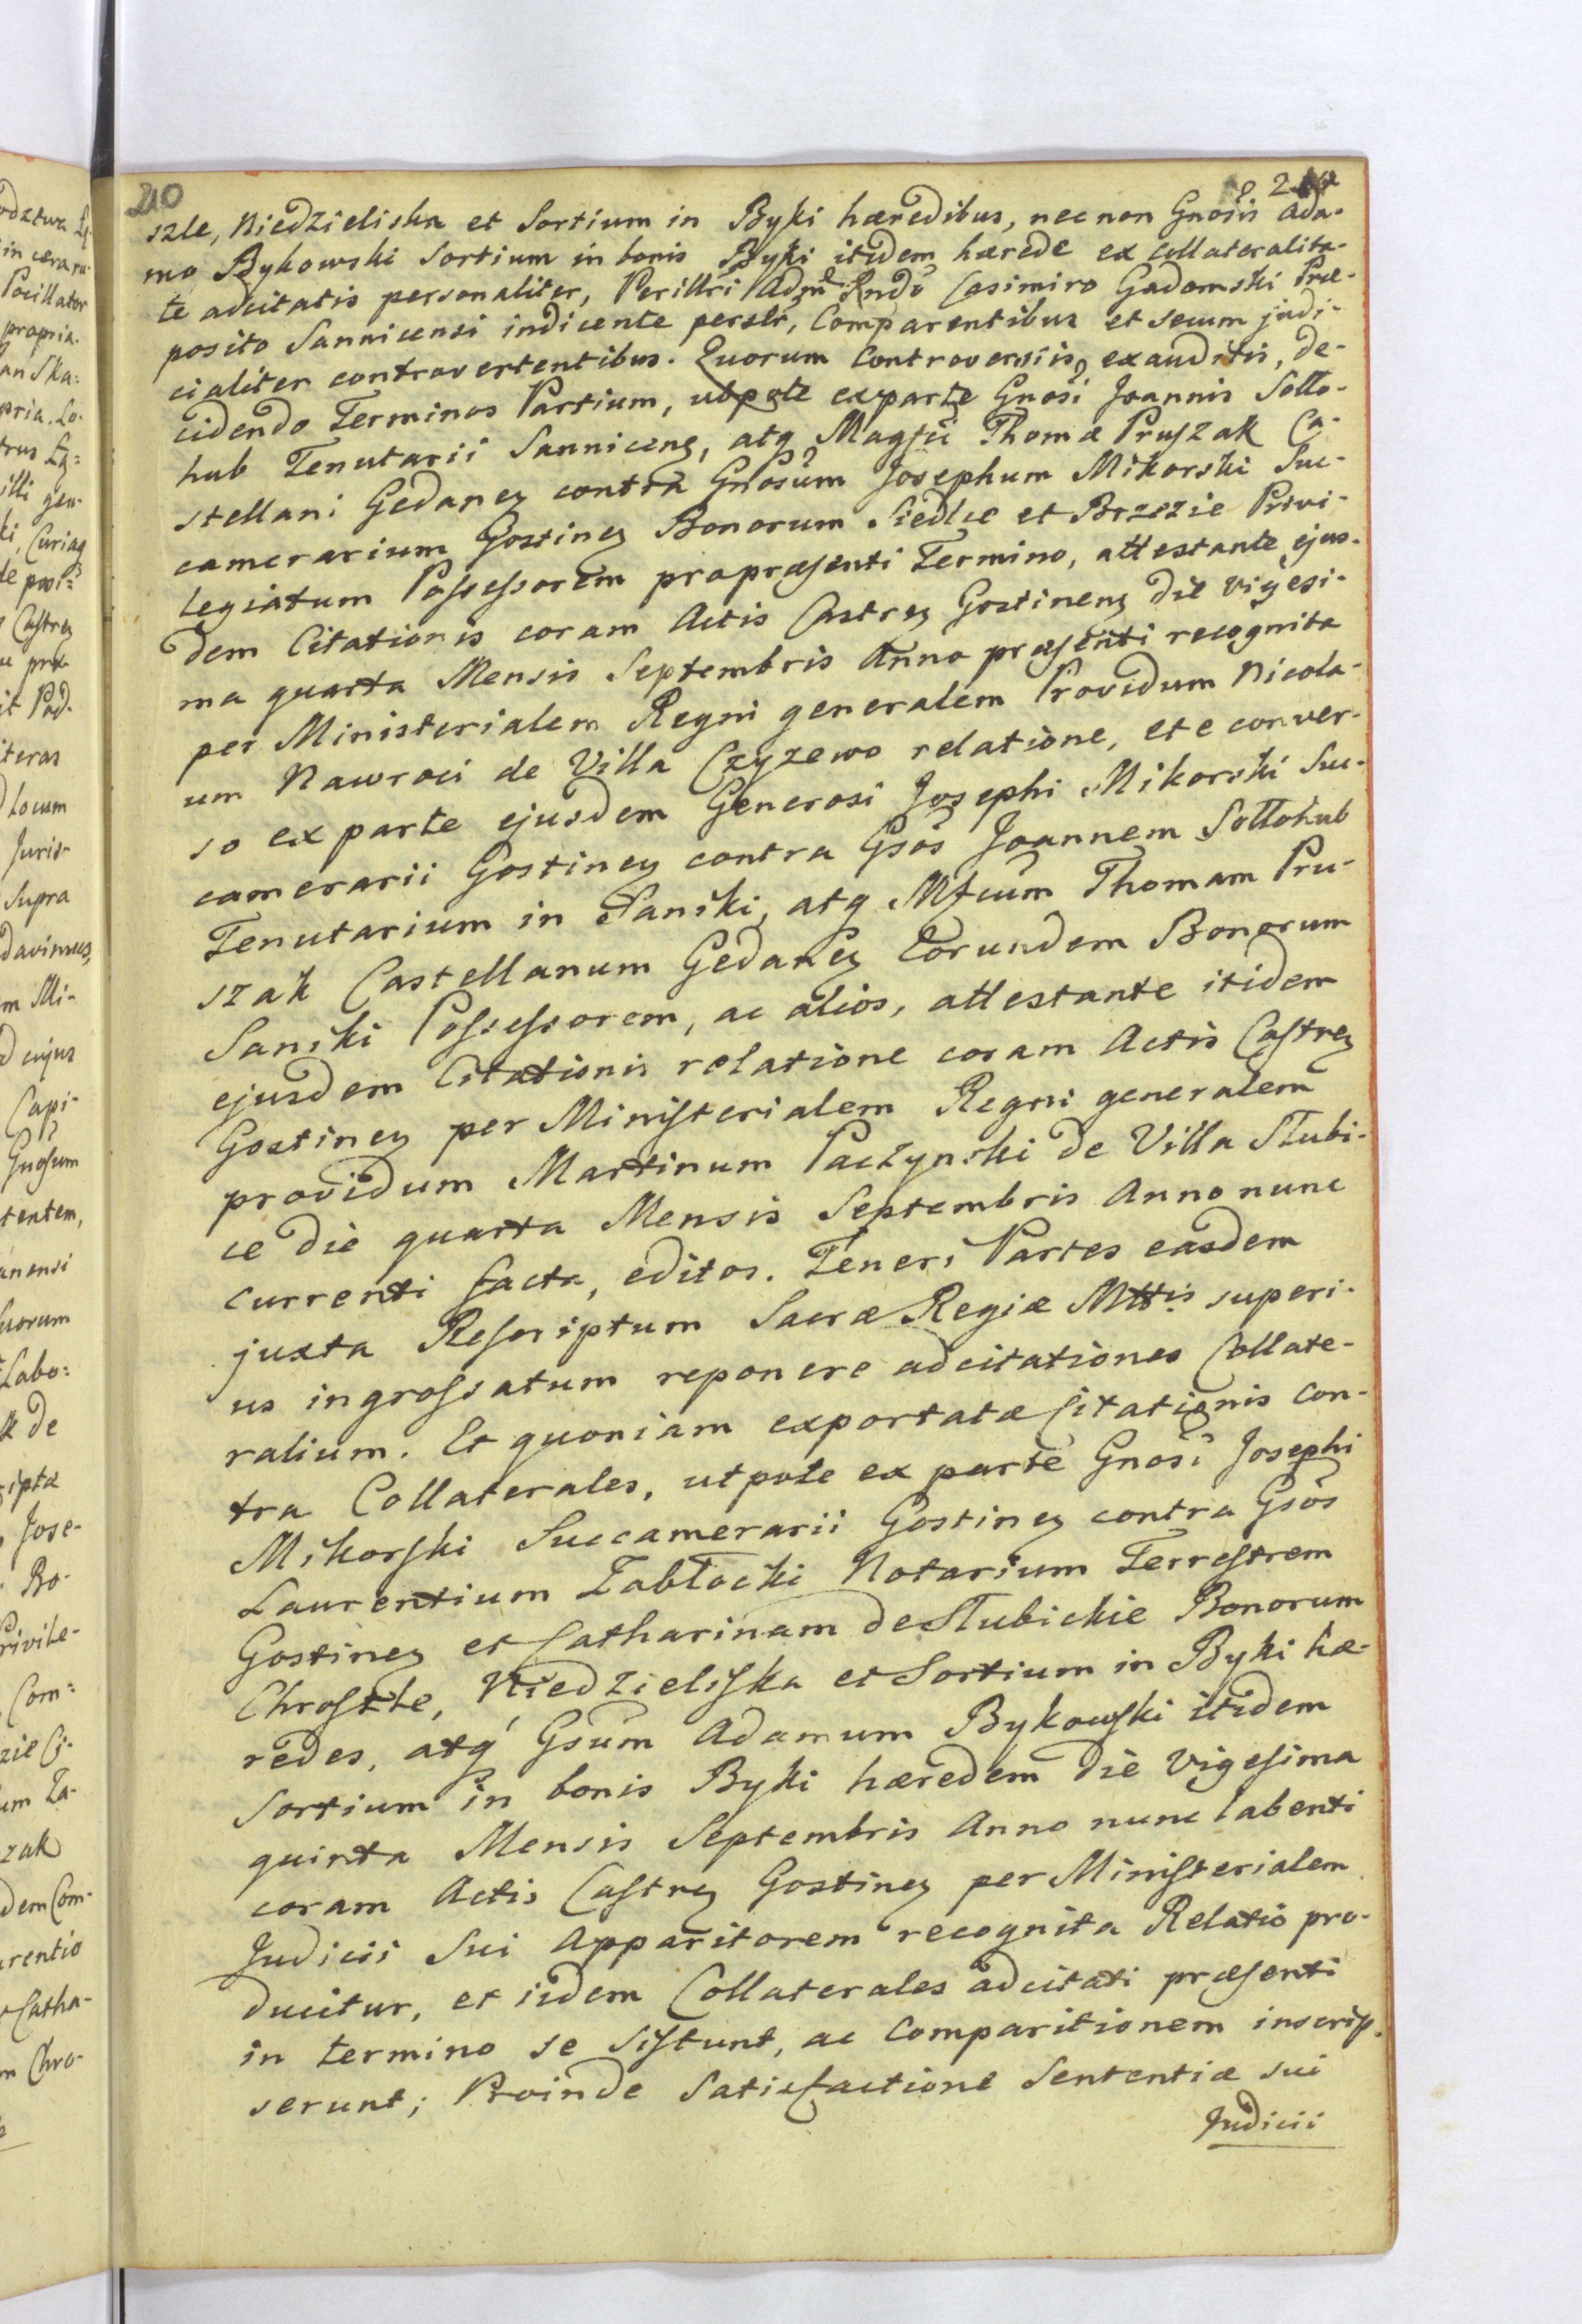 210
szle, Niedzieliska et Sortium in Byki hæredibus, nec non Gnosis Ada-
mo Bykowski Sortium in bonis Byki itidem hærede ex collateralita-
te adcitatis personaliter, Perillri Adm Rndo Casimiro Gadomski Præ-
posito Sannicensi indicente perslr, Comparentibus et secum judi-
cialiter controvertentibus. Quorum Controversiis exauditis, de-
cidendo Terminos Partium, utpote ex parte Gnosi Joannis Sotto-
hub Tenutarii Sanniceng, atq Magfci Thomæ Pruszak Ca-
stellani Gedaneg contra Gnosum Josephum Mikorski Suc-
camerarium Gostineg Bonorum Siedlce et Brzezie Privi-
legiatum Possessorem propræsenti Termino, attestante ejus-
dem Citationis coram Actis Castreg Gostineng die vigesi-
ma quarta Mensis Septembris Anno præsenti recognita
per Ministerialem Regni generalem Providum Nicola-
um Nawroci de Villa Czyzewo relatione, et e conver-
so ex parte ejusdem Generosi Josephi Mikorski Suc-
camerarii Gostineg contra Gsos Joannem Sottohub
Tenutarium in Saniki, atq Mfcum Thomam Pru-
szak Castellanum Gedaneg Eorundem Bonorum
Saniki Possessorem, ac alios, attestante itidem
ejusdem Citationis relatione coram Actis Castreg
Gostineg per Ministerialem Regni generalem
providum Martinum Paczynski de Villa Słubi-
ce die quarta Mensis Septembris Anno nunc
currenti facta, editos. Teneri Partes easdem
juxta Rescriptum Sacræ Regiæ Mttis superi-
us ingrossatum reponere adcitationes Collate-
ralium. Et quoniam exportatæ Citationis con-
tra Collaterales, utpote ex parte Gnosi Josephi
Mikorski Succamerarii Gostineg contra Gsos
Laurentium Zabłocki Notarium Terrestrem
Gostineg et Catharinam de Słubickie Bonorum
Chroszle, Niedzieliska et Sortium in Byki hæ-
redes, atq Gsum Adamum Bykowski itidem
Sortium in bonis Byki hæredem die vigesima
quinta Mensis Septembris Anno nunc labenti
coram Actis Castreg Gostineg per Ministerialem
Judicii Sui Apparitorem recognita Relatio pro-
ducitur, et iidem Collaterales adcitati præsenti
in termino se sistunt, ac Comparitionem inscrip-
serunt; Proinde Satisfactione Sententiæ sui
Judicii